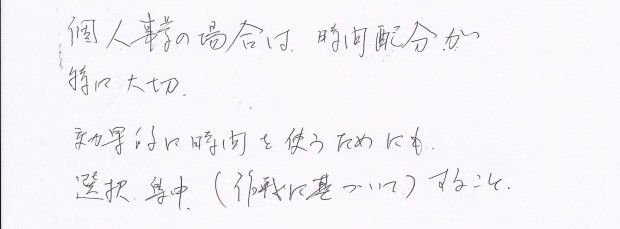 個人事業の場合は、時間配分が
特に大切。
効果的に時間を使うためにも、
選択、集中、(作戦に基づいて)すること。